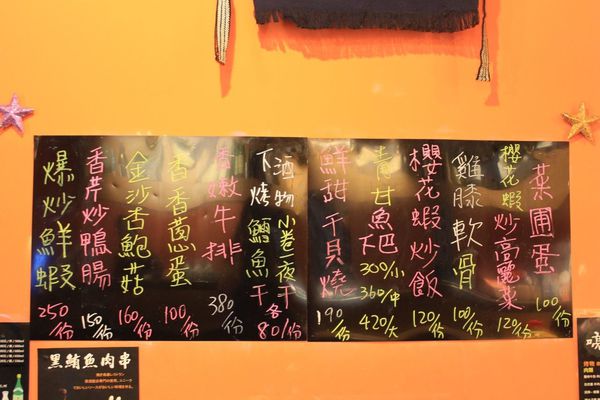 菜圃蛋 100/份
櫻花蝦炒高麗菜 120/份
雞膝軟骨 100/份
櫻花蝦炒飯 120/份
青甘魚下巴 300/小 360/中 420/大
鮮甜干貝燒 190/份
下酒物
小卷一夜干
烤鱈魚干
各80/份
香嫩牛排 380/份
香香蔥蛋 100/份
金沙杏鮑菇 160/份
香芹炒鴨腸 150/份
爆炒鮮蝦 250/份
黑鮪魚肉串